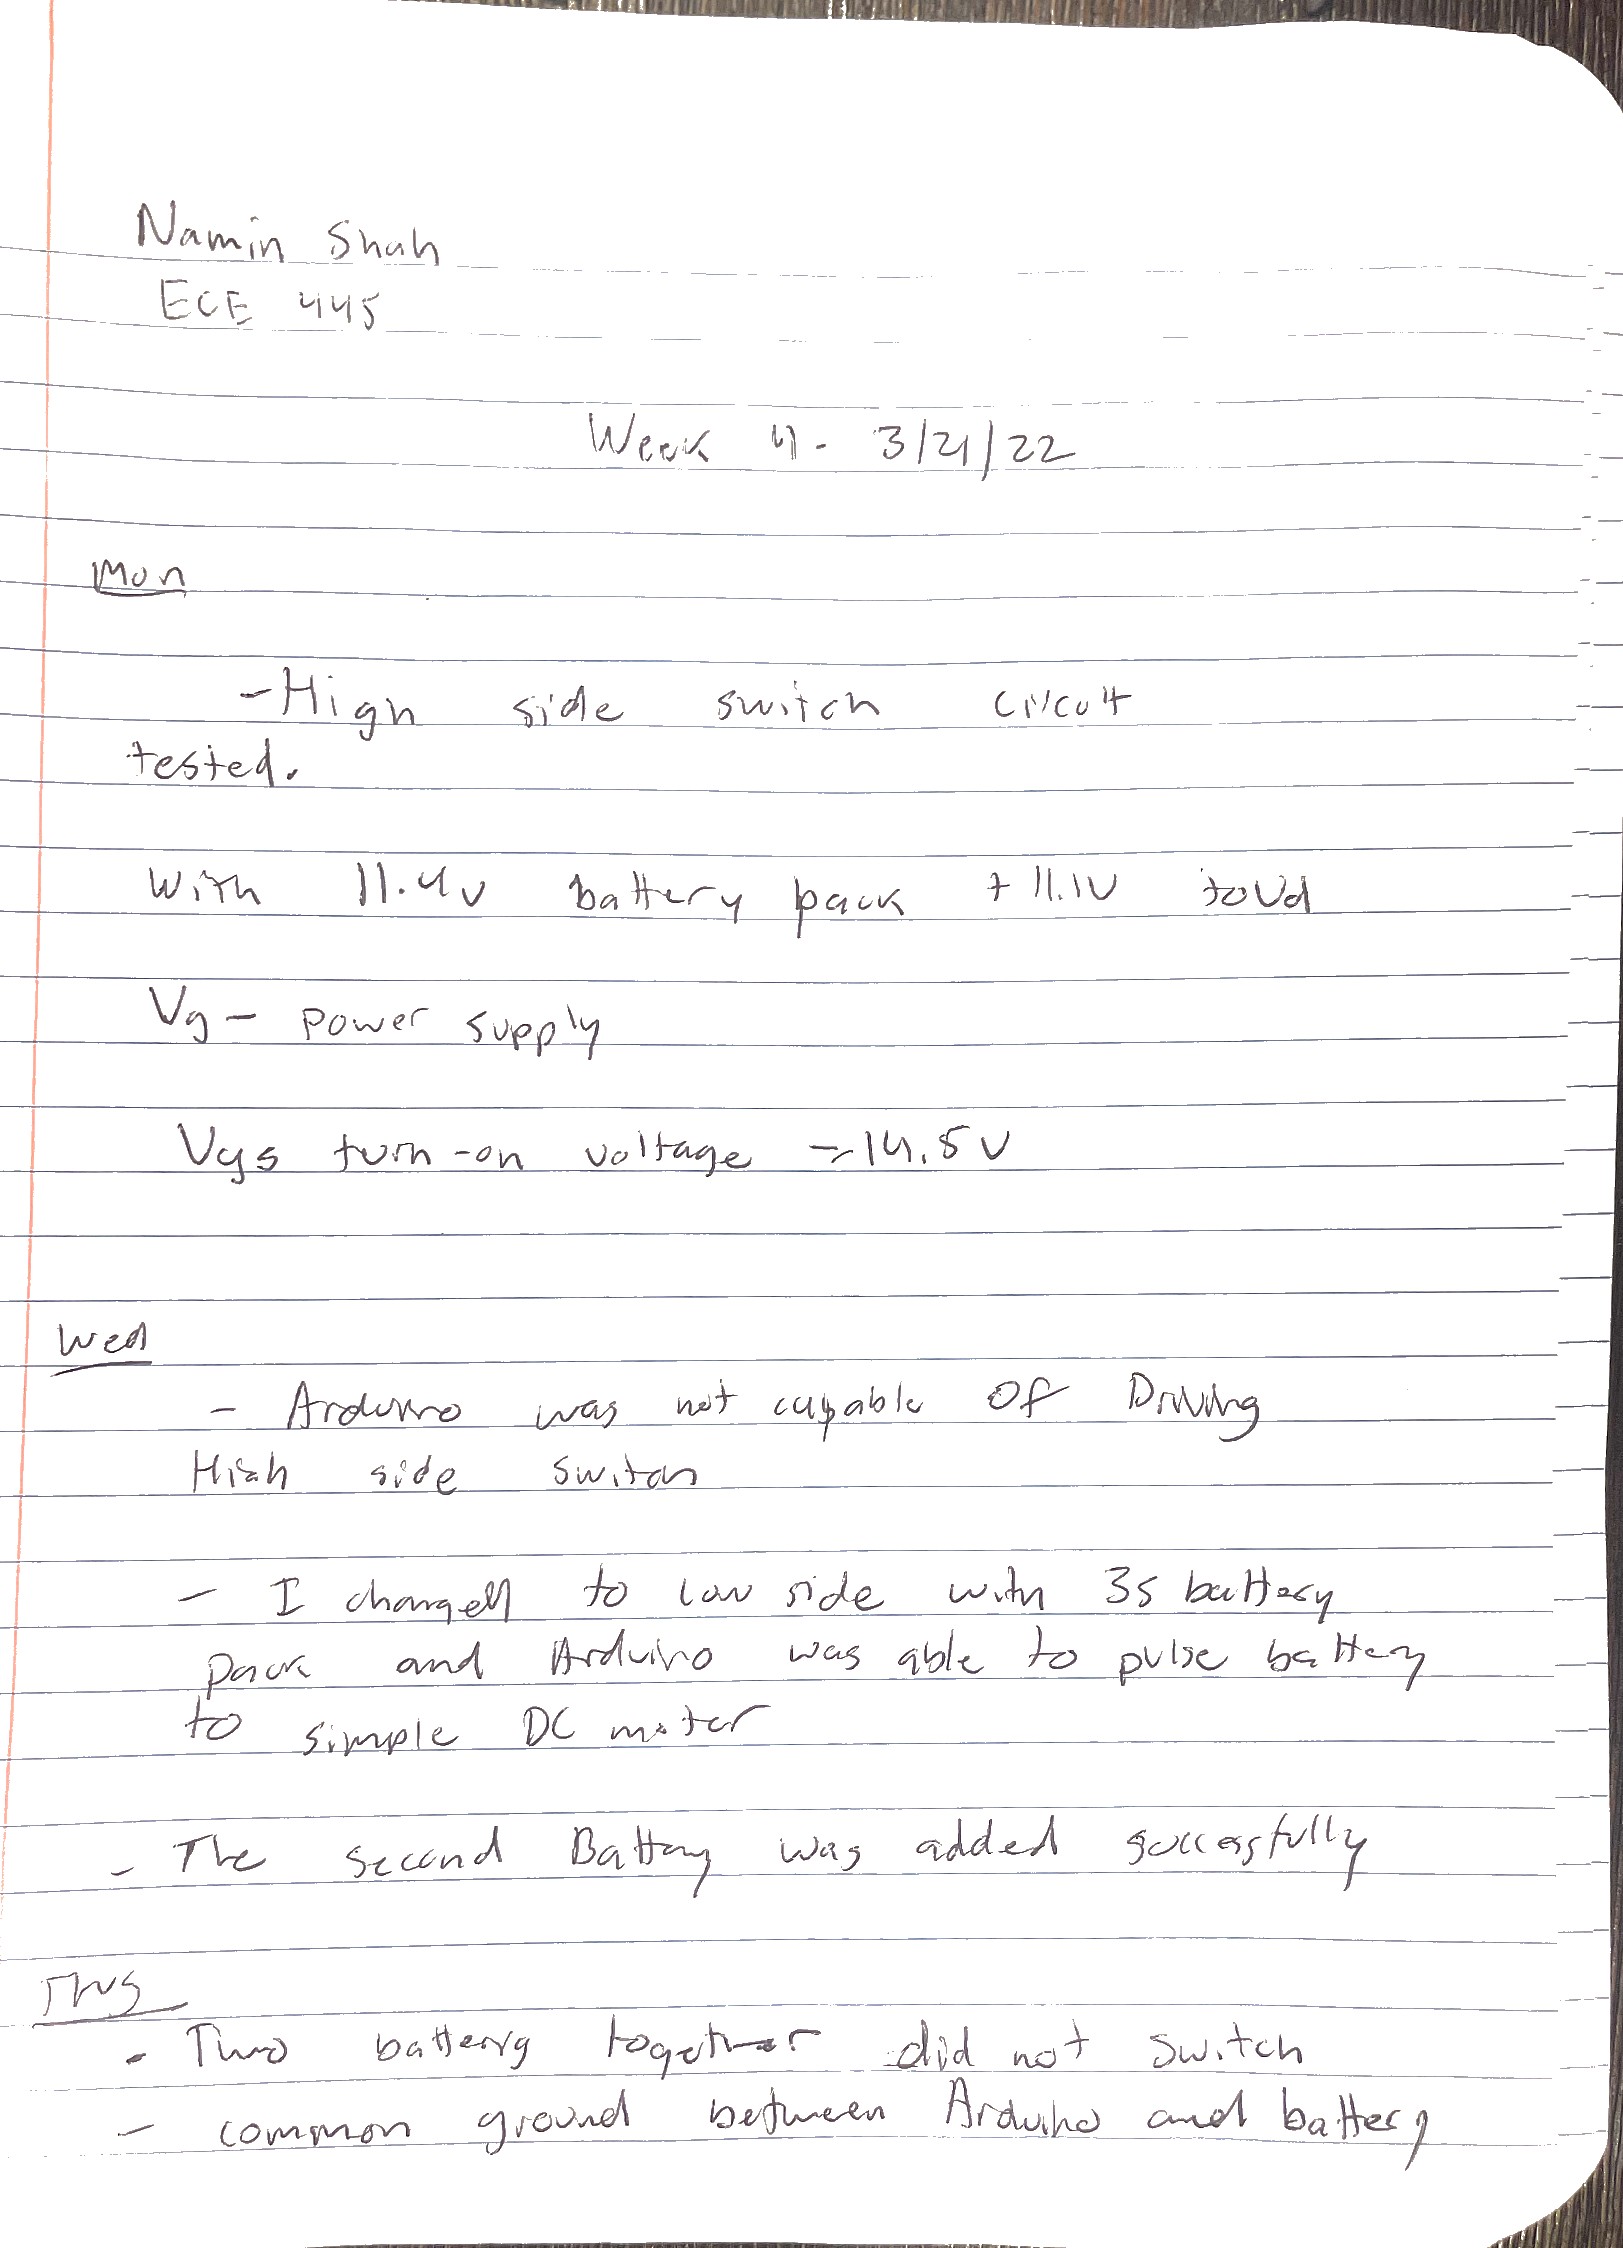 Namin Shah
ECE 445
Week 4 - 3/21/22
Mon
- High side switch circuit
tested.
With 11.4v battery pack + 11.1V to Vd
Vg - power supply
Vgs turn-on voltage = 14.5V
Wed
- Arduino was not capable Of Driving
High side switch
- I changed to low side with 3s battery
pack and Arduino was able to pulse battery
to simple DC motor
- The second Battery was added successfully
Thus
- Two battery together did not switch
- common ground between Arduino and battery